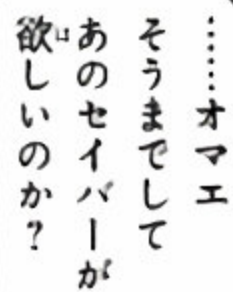 ……オマエ
そうまでして
あのセイバーが
欲しいのか?